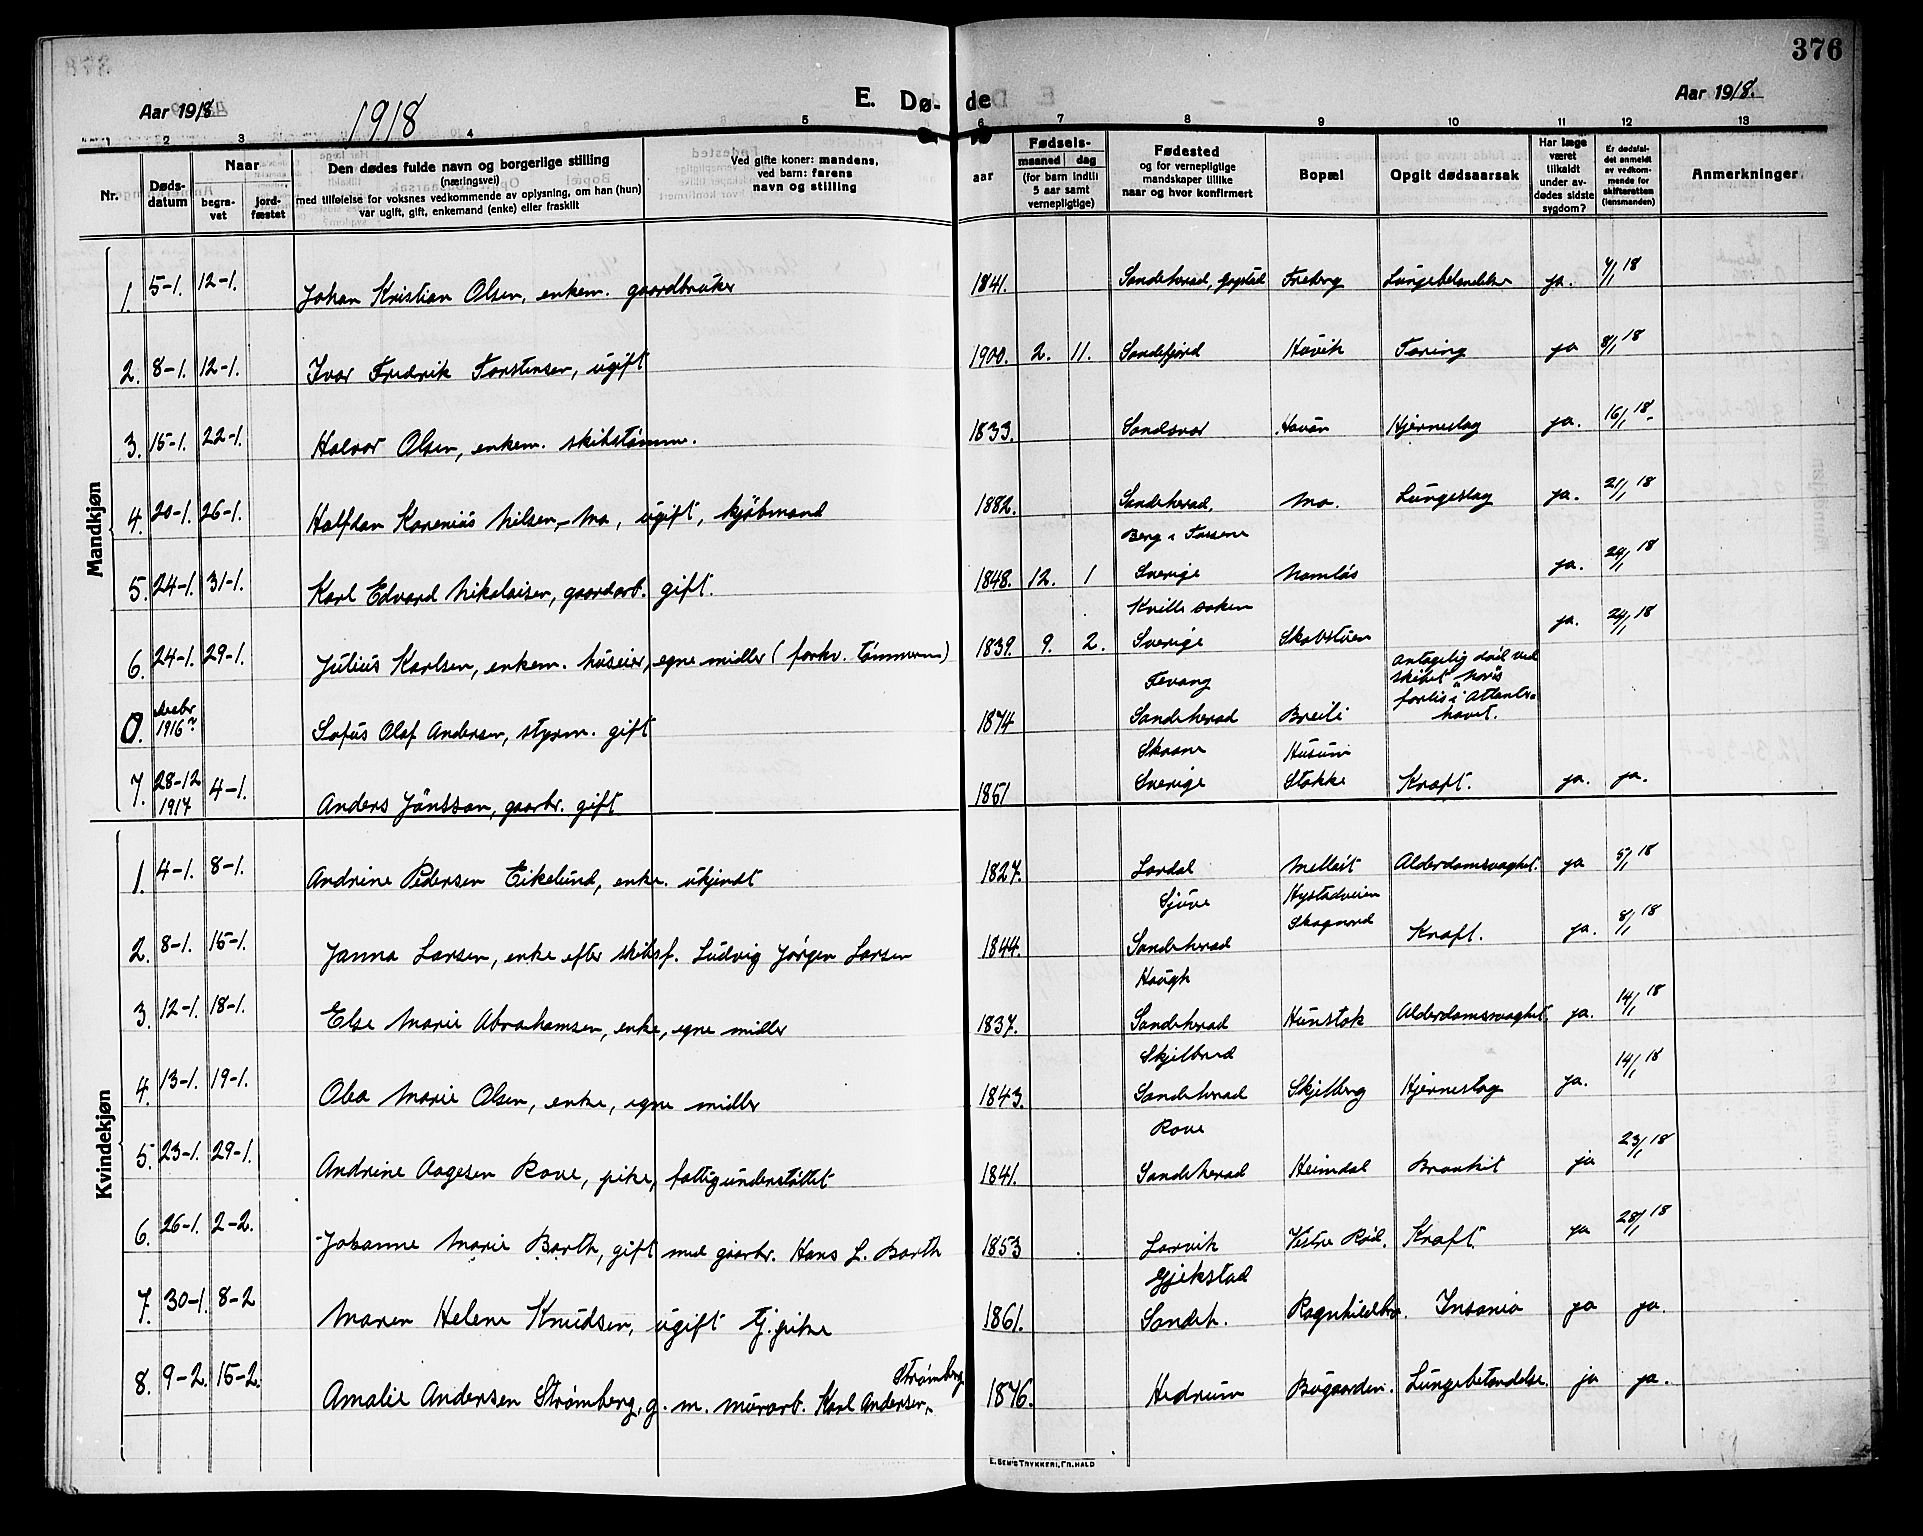 376
Aar 1918
1918
E. Dø-
de
Aar 1918.
2 3 4 5 6 7 8 9 10 11 12 13
Nr.
Døds-datum
Naar
begra-vet
jord-fæstet
Den dødes fulde navn og borgerlige stilling
(næringsvei)
med tilføielse for voksnes vedkommende av oplysning, om han (hun)
var ugift, gift, enkemand (enke) eller fraskilt
Ved gifte koner: mandens,
ved barn: farens
navn og stilling
aar
Fødsels-
maaned dag
(for barn indtil
5 aar samt
vernepligtige)
Fødested
og for vernepligtige
mandskaper tillike
naar og hvor konfirmert
Bopæl
Opgit dødsaarsak
Har læge
været
tilkaldt
under av-
dødes sidste
sygdom?
Er dødsfal-
det anmeldt
av vedkom-
mende for
skifteretten
(lensmanden)
Anmerkninger
Mandkjøn
1. 5-1. 12-1. Johan Kristian Olsen, enkem. gaardbruker 1841. Sandeherad, Freberg Lungebetændelse ja. 7/1 18
2. 8-1. 12-1. Ivar Fredrik Torstensen, ugift 1900. 2. 11. Sandefjord Havik Tæring ja 8/1 18
3. 15-1. 22-1. Halvor Olsen, enkem. skibstømm. 1833. Sandsvær Havån Hjerneslag ja. 16/1 18-
4. 20-1. 26-1. Halfdan Karenius Nilsen, Mo, ugift, kjøbmand 1882. Sandeherad. Mo. Lungeslag ja. 21/1 18
Berg i Tossene
5. 24-1. 31-1. Karl Edvard Nikolaisen, gaardarb. gift. 1848. 12. 1 Sverige Namløs ja. 29/1 18
Kville soken
6. 24-1. 29-1. Julius Karlsen, enkem. huseier, egne midler (forhv. tømmerm) 1839. 9. 2. Sverige Skobstuen ja. 24/1 18
Fevang
0. Decbr 1916? Sofus Olaf Andersen, styrm. gift 1874 Sandeherad Breili Antagelig død ved
skibet "Noris"
forlis i Atlanter-
havet.
Skaane Husum
7. 28-12 1917 4-1. Anders Jönsson, gaarbr. gift 1851 Sverige Stokke Kræft. ja. ja.
Kvindekjøn
1. 4-1. 8-1. Andrine Pedersen Eikelund, enke. ukjendt 1827. Lardal Melleit Alderdomsvaghet. ja 5/1 18
Sjuve Hystadveien
2. 8-1. 15-1. Janna Larsen, enke efter skibsf. Ludvig Jørgen Larsen 1844. Sandeherad Skagnord Kræft. ja. 8/1 18
Haugh
3. 12-1. 18-1. Else Marie Abrahamsen, enke, egne midler 1837. Sandeherad Hunstok Alderdomsvaghet. ja. 14/1 18
Skjelbred
4. 13-1. 19-1. Olea Marie Olsen, enke, egne midler 1843. Sandeherad Skjelberg Hjerneslag ja. 14/1 18
Rove
5. 23-1. 29-1. Andrine Aagesen Rove, pike, fattigunderstøttet 1841. Sandeherad Heimdal Bronkit ja 23/1 18
6. 26-1. 2-2. Johanne Marie Barth, gift med gaarbr. Hans L. Barth 1853 Larvik Vestre Rød. Kræft. ja 28/1 18
Gjekstad
7. 30-1. 8-2 Maren Helene Knudsen, ugift tj.pike 1861. Sandeh. Ragnhildsbro. Insania ja ja.
8. 9-2. 15-2. Amalie Andersen Strømberg, g. m. murarb. Karl Andersen Strømberg 1876. Hedrum Bugaarden. Lungebetændelse. ja ja.
E. SEM'S TRYKKERI, FR.HALD